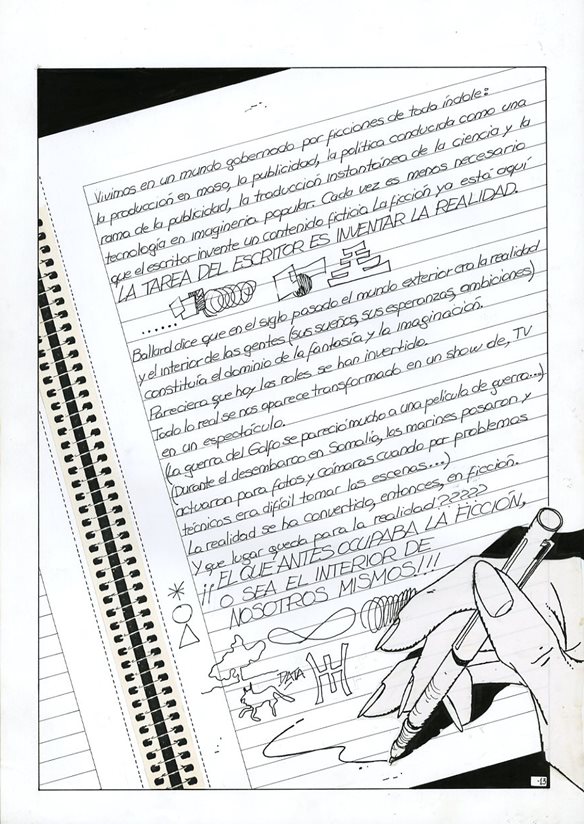 Vivimos en un mundo gobernado por ficciones de toda índole:
la producción en masa, la publicidad, la política conducida como una
rama de la publicidad, la traducción instantánea de la ciencia y la
tecnología en imaginería popular. Cada vez es menos necesario
que el escritor invente un contenido ficticio. La ficción ya está aquí
LA TAREA DEL ESCRITOR ES INVENTAR LA REALIDAD.
......
Ballard dice que en el siglo pasado el mundo exterior era la realidad
y el interior de las gentes (sus sueños, sus esperanzas, ambiciones)
constituía el dominio de la fantasía y la imaginación.
Pareciera que hoy los roles se han invertido.
Todo lo real se nos aparece transformado en un show de, TV
en un espectáculo.
(La guerra del Golfo se pareció mucho a una película de guerra...)
(Durante el desembarco en Somalía, los marines posaron y
actuaron para fotos y cámaras cuando por problemas
técnicos era difícil tomar las escenas...)
La realidad se ha convertido, entonces, en ficción.
Y que lugar queda para la realidad?????
¡¡EL QUE ANTES OCUPABA LA FICCIÓN,
O SEA EL INTERIOR DE
NOSOTROS MISMOS!!!
DATA
13